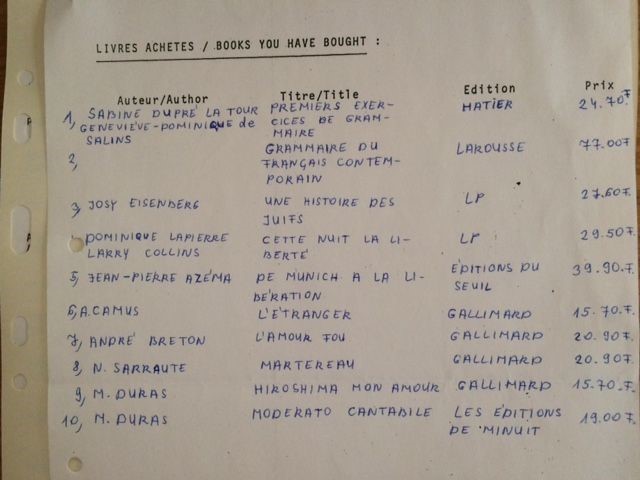 LIVRES ACHETES / BOOKS YOU HAVE BOUGHT :
Auteur/Author Titre/Title Edition Prix
1, SABINE DUPRÉ LA TOUR PREMIERS EXER- HATIER 24.70F
GENEVIÈVE-DOMINIQUE de CICES DE GRAM-
SALINS MAIRE
2, GRAMMAIRE DU LAROUSSE 77.00F
FRANÇAIS CONTEM-
PORAIN
3, JOSY EISENBERG UNE HISTOIRE DES LP 27.60F.
JUIFS
DOMINIQUE LAPIERRE CETTE NUIT LA LI- LP 29.50F.
LARRY COLLINS BERTÉ
5, JEAN-PIERRE AZÉMA DE MUNICH A LA LI- EDITIONS DU 39.90.F.
BÉRATION SEUIL
6, A. CAMUS L'ÉTRANGER GALLIMARD 15.70.F.
7, ANDRÉ BRETON L'AMOUR FOU GALLIMARD 20.90F.
8, N. SARRAUTE MARTEREAU GALLIMARD 20.90F.
9, M. DURAS HIROSHIMA MON AMOUR GALLIMARD 15.70.F.
10, M. DURAS MODERATO CANTABILE LES ÉDITIONS 19.00F.
DE MINUIT